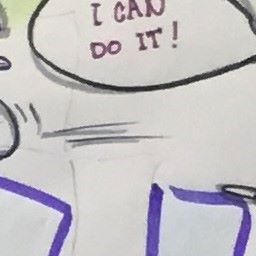 I CAN
DO IT!